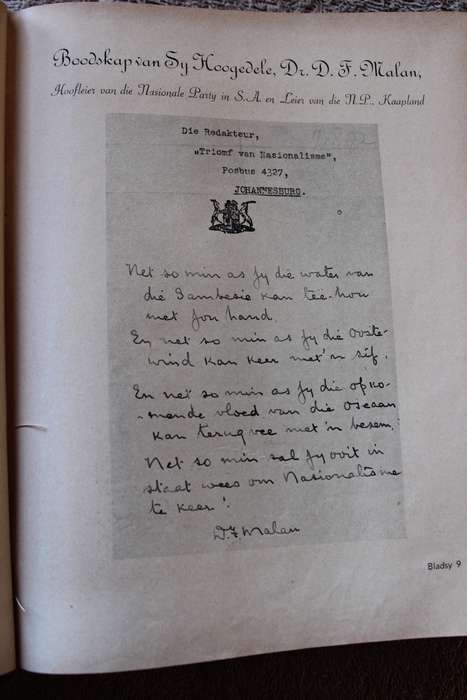 Boodskap van Sy Hoogedele, Dr. D. F. Malan,
Hoofleier van die Nasionale Party in S.A. en Leier van die N.P., Kaapland
Die Redakteur,
„Triomf van Nasionalisme",
Posbus 4327,
JOHANNESBURG.
Net so min as jy die water van
die Sambesie kan teë-hou
met jou hand.
En net so min as jy die Ooste-
wind kan keer met 'n sif.
En net so min as jy die opko-
mende vloed van die Oseaan
kan terugvee met 'n besem,
Net so min sal jy ooit in
staat wees om Nasionalisme
te keer!
D. F. Malan
Bladsy 9